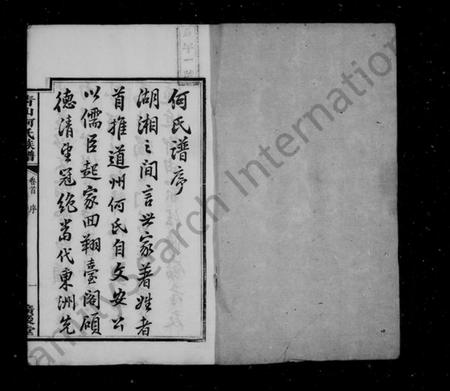 何氏譜序
湖湘之間言世家著姓者
首推道州何氏自文安公
以儒臣起家回翔臺閣碩
德清望冠絶當代東洲先
何氏族譜
卷首
序
一
FamilySearch International